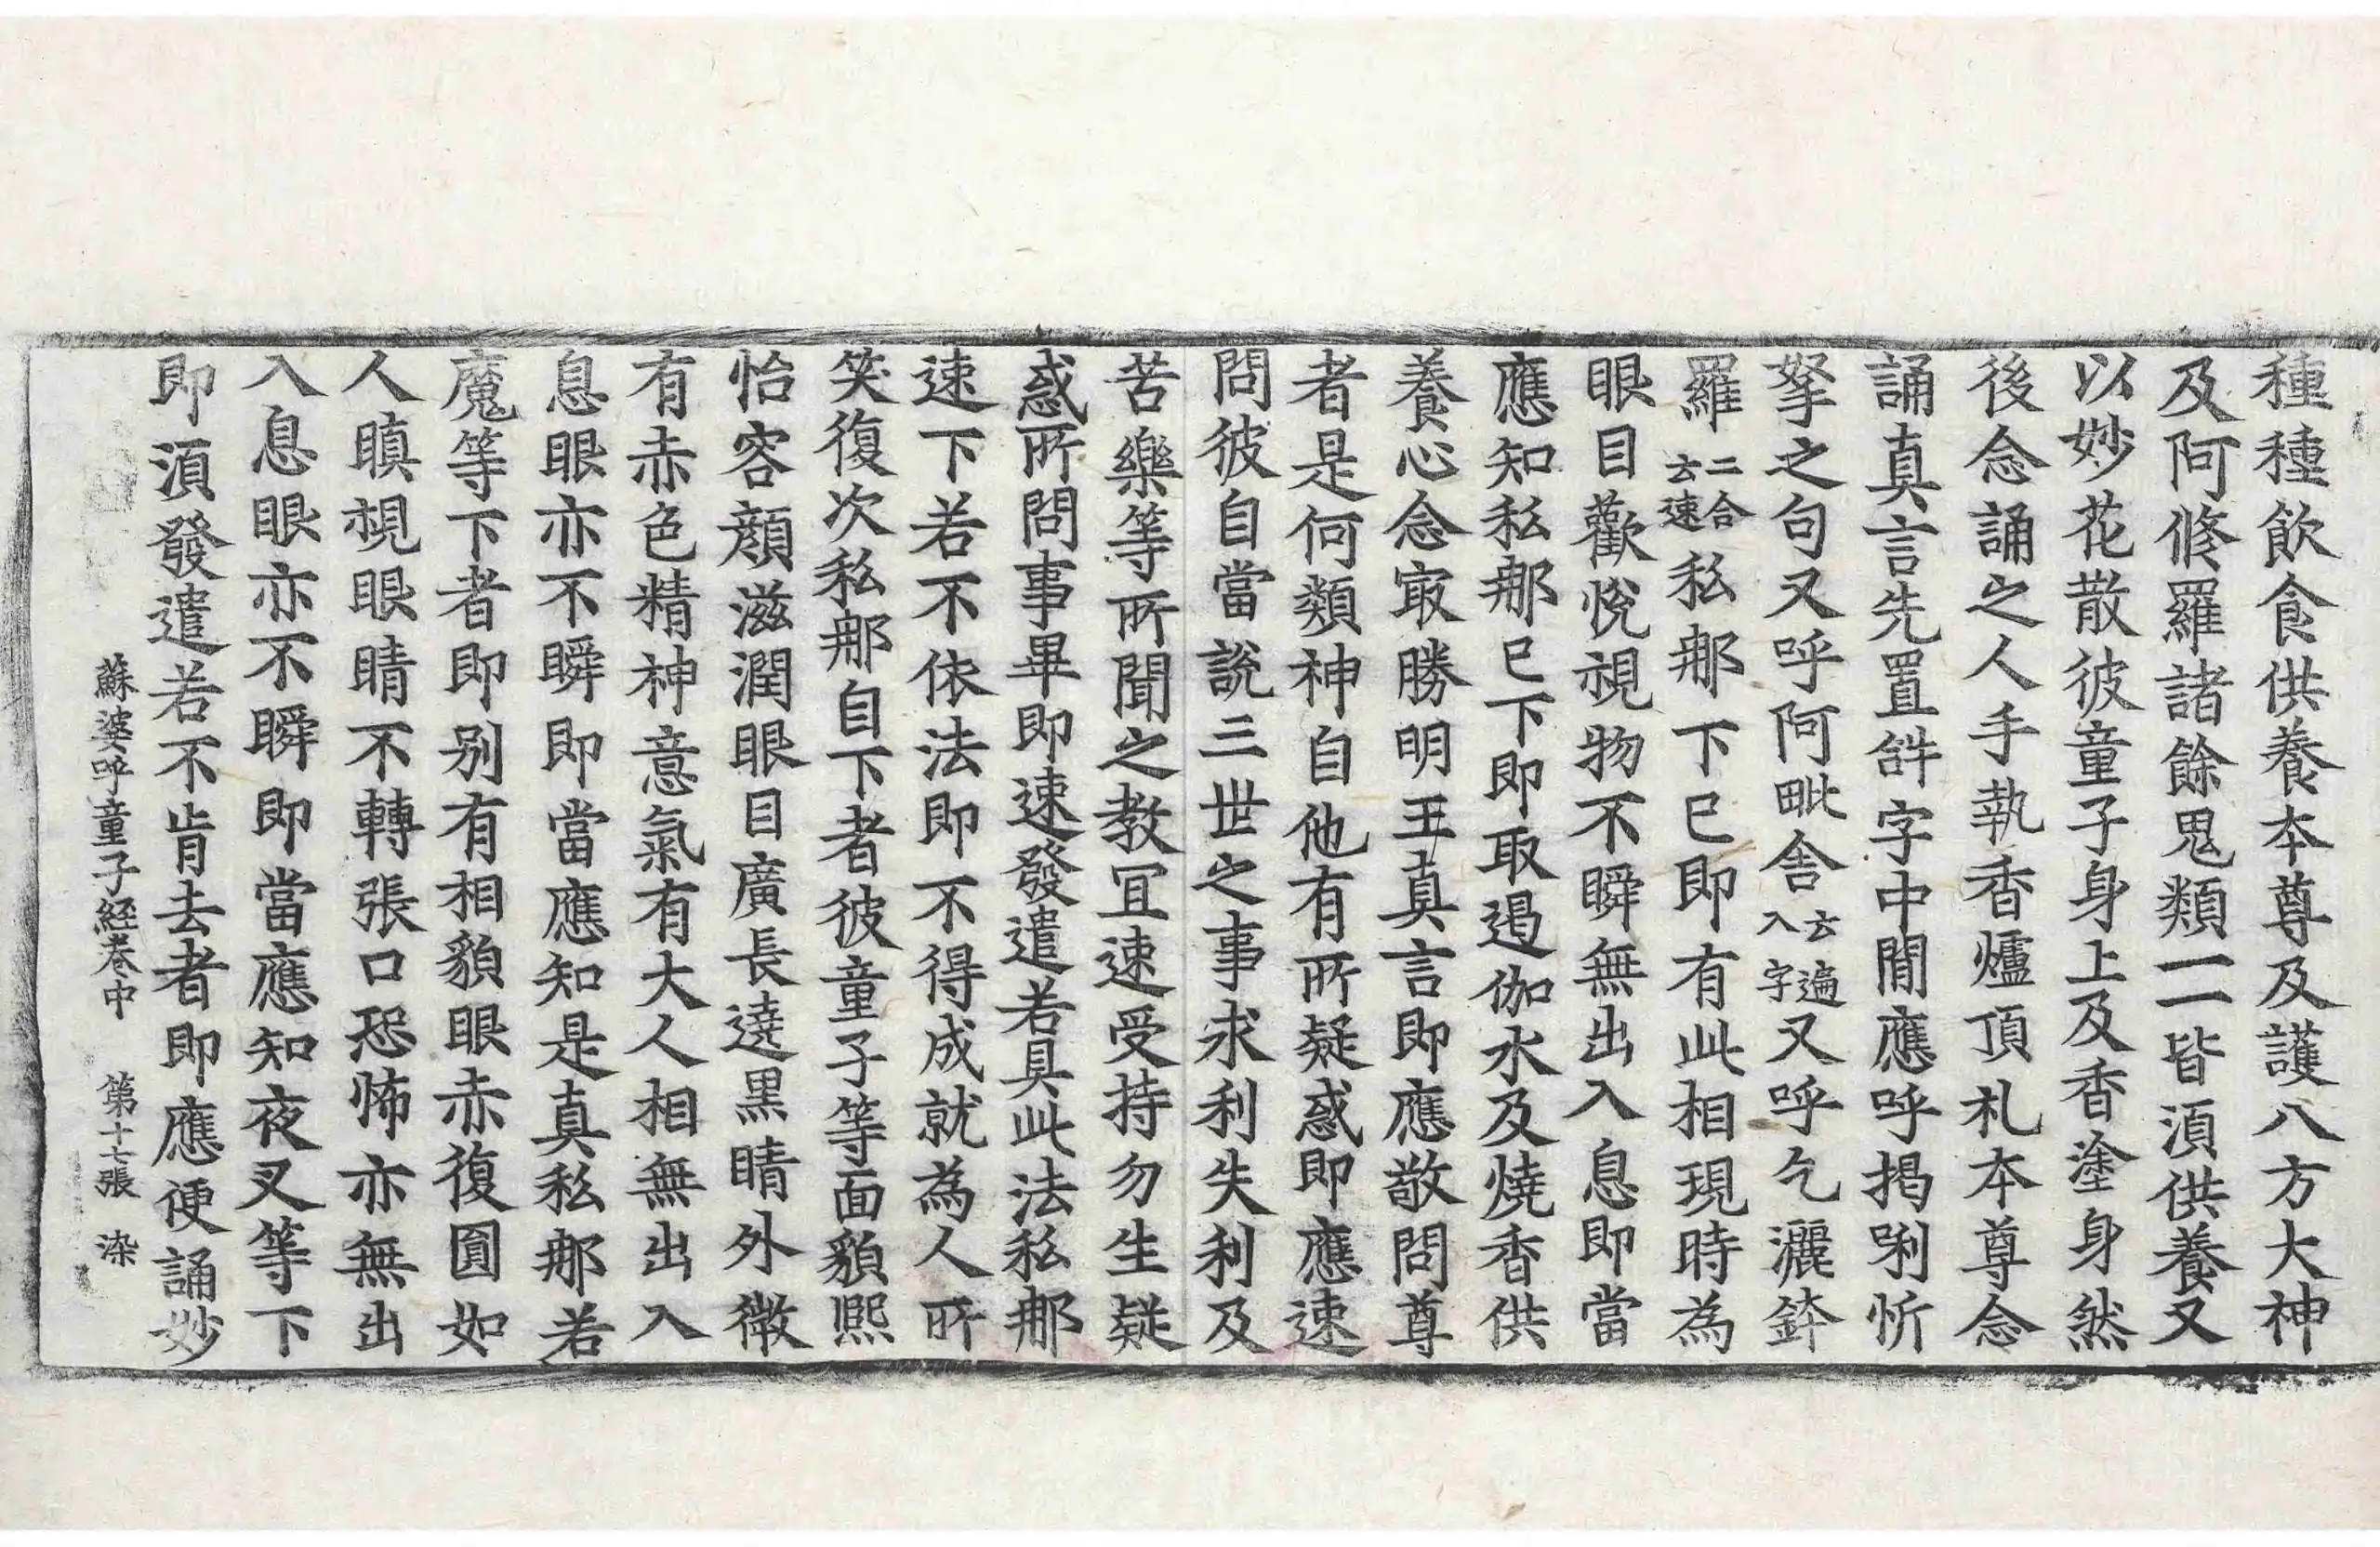 種種飲食供養本尊及護八方大神
及阿修羅諸餘鬼類一一皆湏供養又
以妙花散彼童子身上及香塗身然
後念誦之人手執香爐頂礼本尊念
誦真言先置𤙖字中間應呼揭唎忻
拏之句又呼阿毗舍云遍入字又呼乞灑鉡
羅二合云速私那下已即有此相現時為
眼目歡悅視物不瞬無出入息即當
應知私那已下即取遏伽水及燒香供
養心念㝡勝明王真言即應敬問尊
者是何類神自他有所疑惑即應速
問彼自當說三世之事求利失利及
苦樂等所聞之教冝速受持勿生疑
惑所問事畢即速發遣若具此法私那
速下若不依法即不得成就為人所
笑復次私那自下者彼童子等面貌熙
怡容顏滋潤眼目廣長遶黑睛外微
有赤色精神意氣有大人相無出入
息眼亦不瞬即當應知是真私那若
魔等下者即別有相貌眼赤復圓如
人瞋視眼睛不轉張口恐怖亦無出
入息眼亦不瞬即當應知夜叉等下
即湏發遣若不肯去者即應便誦妙
蘇婆呼童子經卷中 第十七張 染